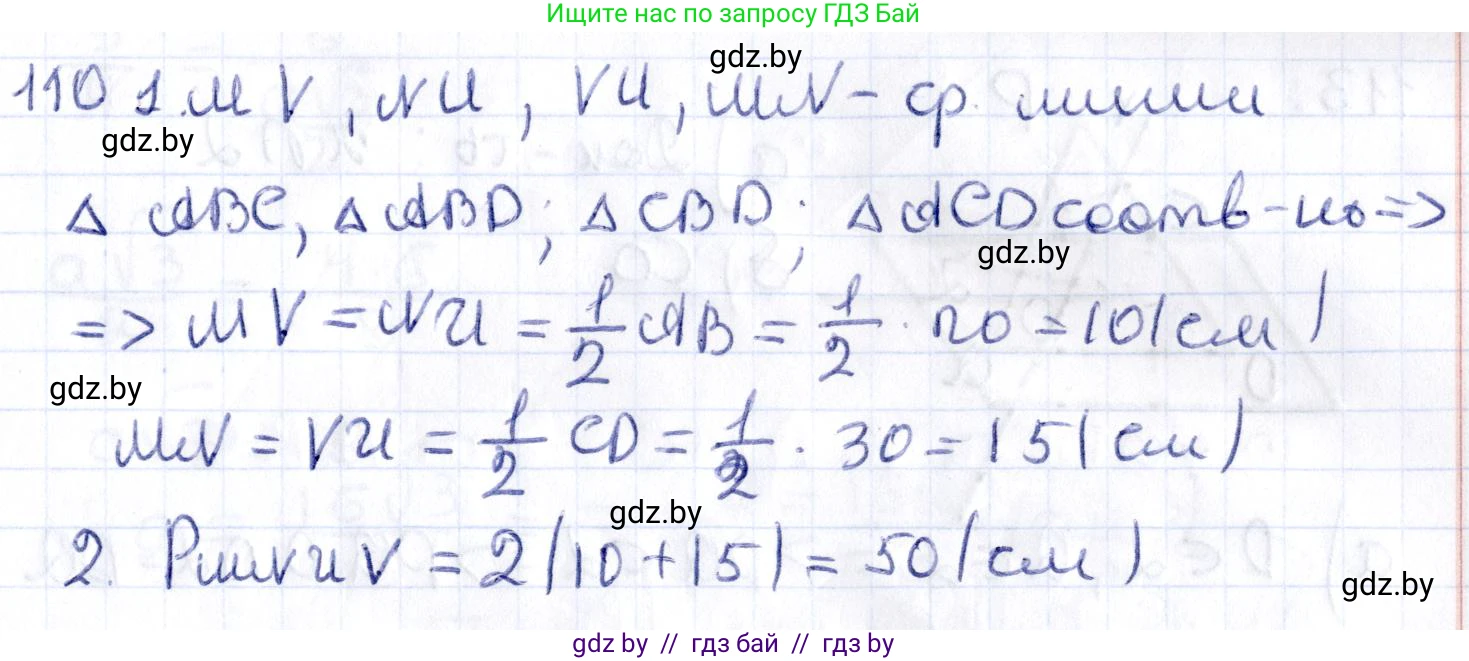 Ищите нас по запросу ГДЗ Бай
gdz.by
110 1. MV, NU, VU, MN - ср. линии
gdz.by
△ ABC, △ ABD; △ CBD; △ ACD соотв-но =>
gdz.by
=> MV = NU = 1/2 AB = 1/2 · 20 = 10 (см)
gdz.by
MN = VU = 1/2 CD = 1/2 · 30 = 15 (см)
gdz.by
2. PMNUV = 2(10 + 15) = 50 (см)
gdz.by
gdz.by // гдз бай // гдз by